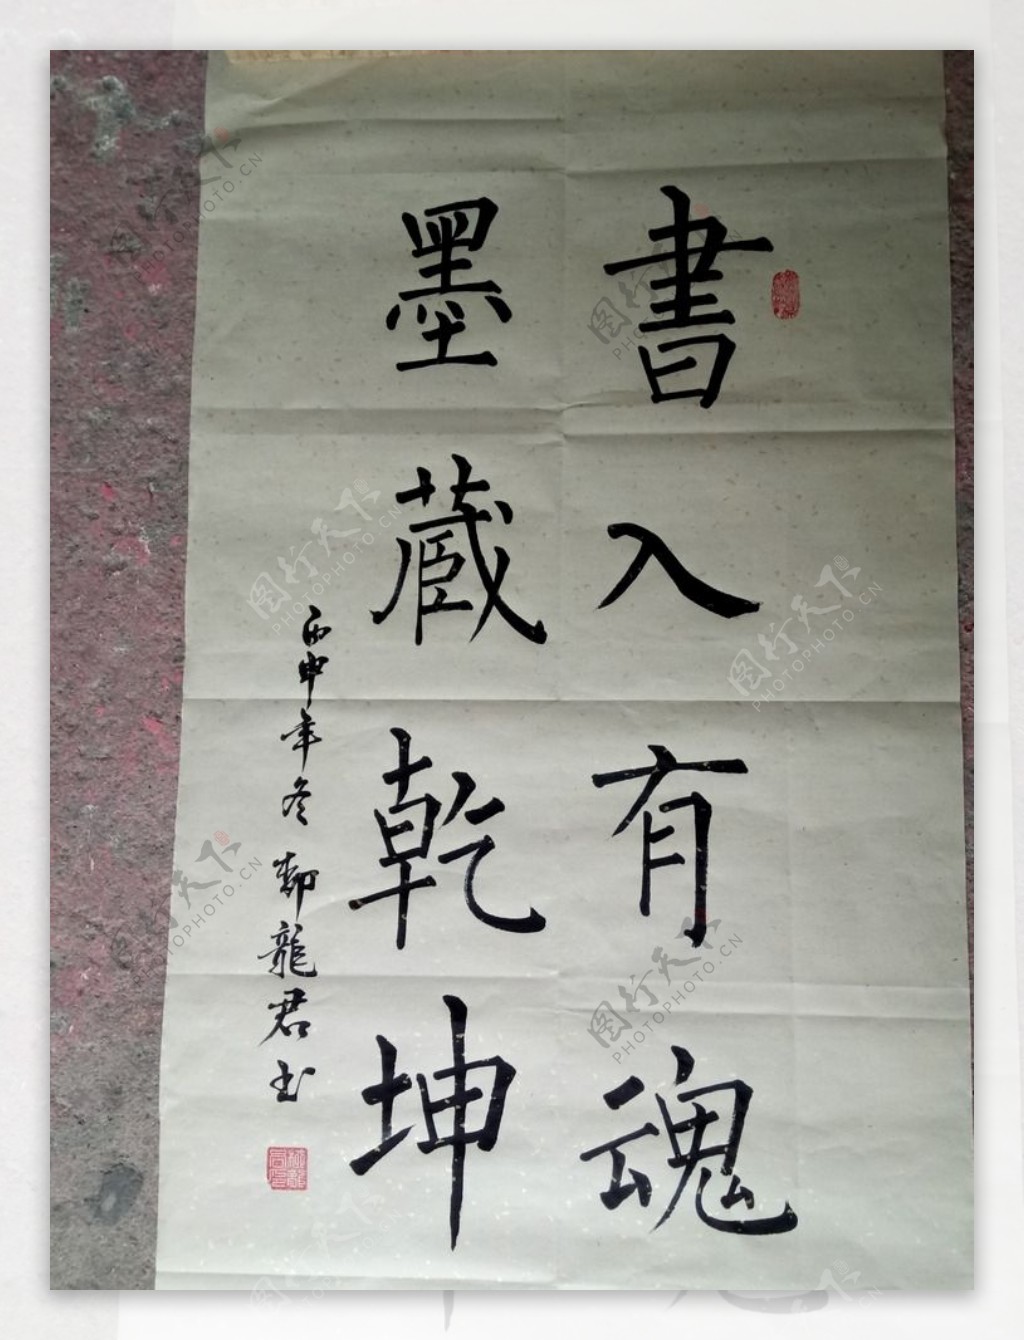 書入有魂
墨藏乾坤
丙申年冬 龍君书
图行天下 PHOTOPHOTO.CN